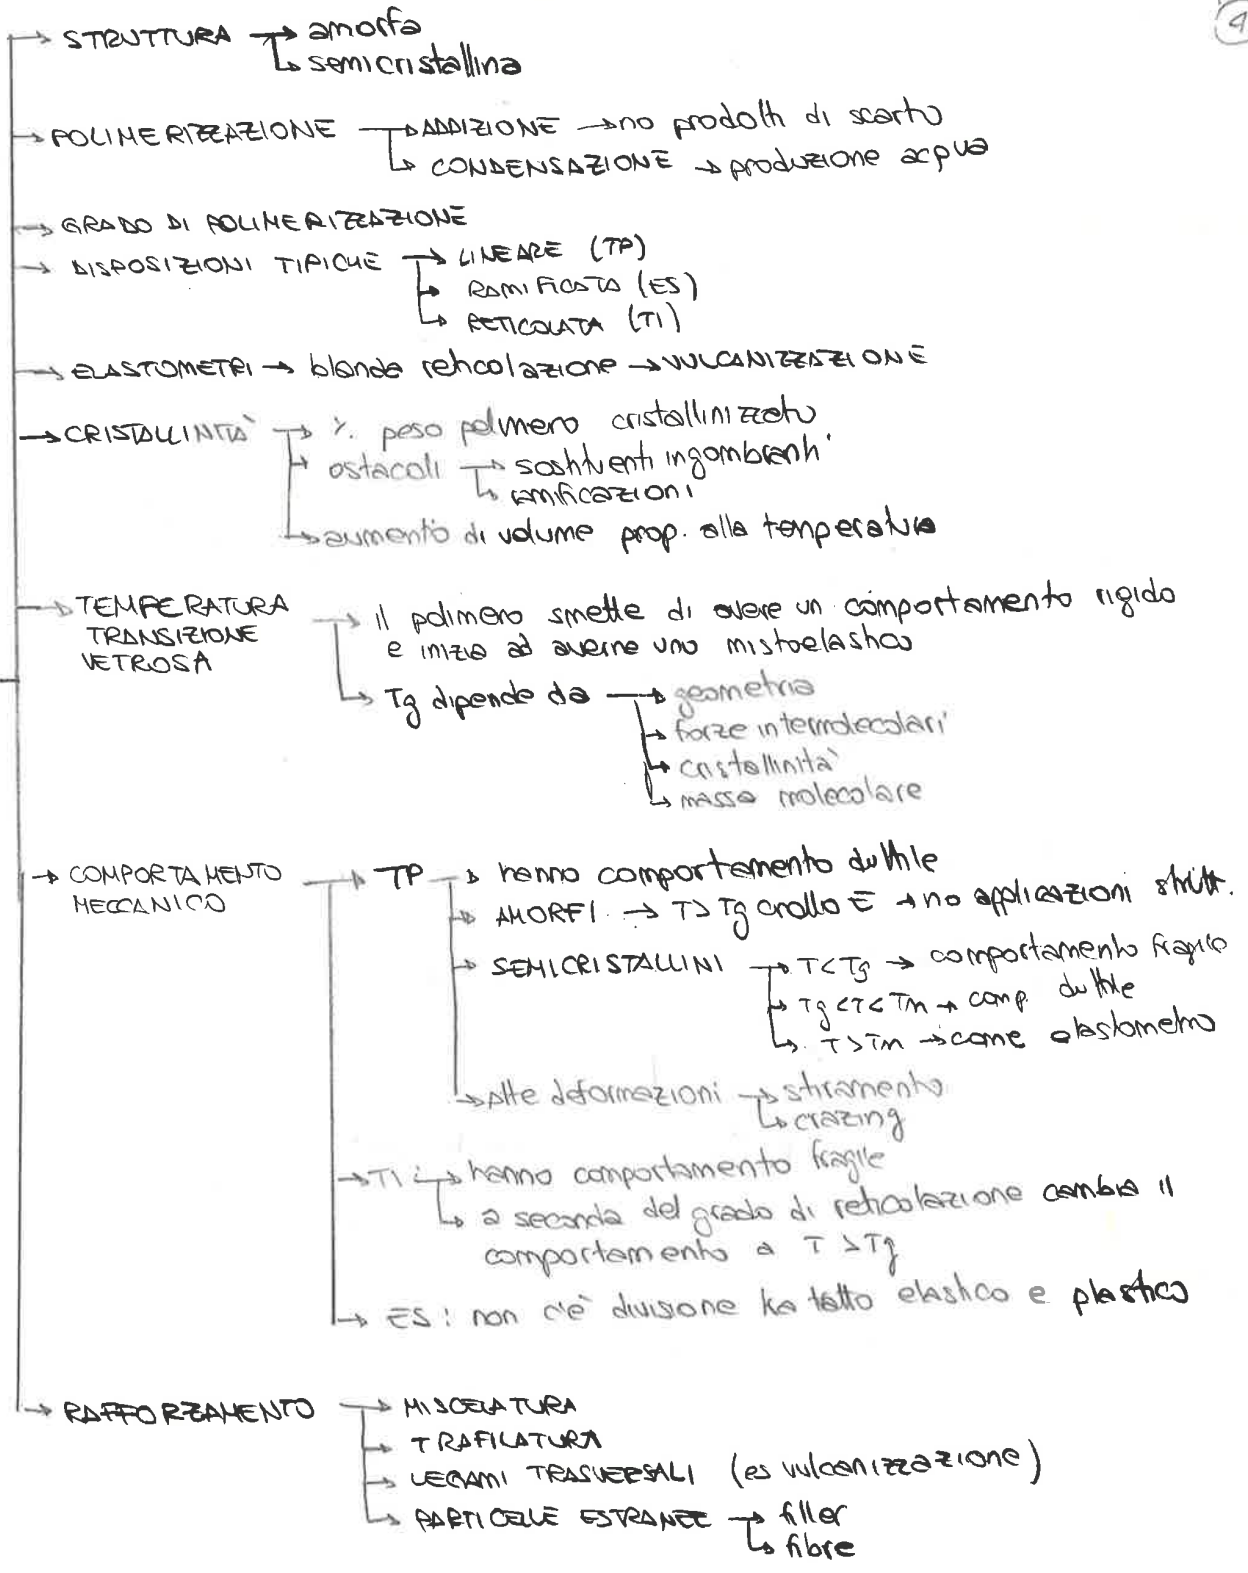 4
→ STRUTTURA → amorfa
↳ semicristallina
→ POLIMERIZZAZIONE → ADDIZIONE → no prodotti di scarto
↳ CONDENSAZIONE → produzione acqua
→ GRADO DI POLIMERIZZAZIONE
→ DISPOSIZIONI TIPICHE → LINEARE (TP)
→ RAMIFICATA (ES)
↳ RETICOLATA (TI)
→ ELASTOMETRI → blanda reticolazione → VULCANIZZAZIONE
→ CRISTALLINITÀ → % peso polimero cristallizzato
→ ostacoli → sostituenti ingombranti
↳ ramificazioni
↳ aumento di volume prop. alla temperatura
→ TEMPERATURA
TRANSIZIONE
VETROSA
→ il polimero smette di avere un comportamento rigido
e inizia ad averne uno mistoelastico
↳ Tg dipende da → geometria
→ forze intermolecolari
→ cristallinità
↳ massa molecolare
→ COMPORTAMENTO
MECCANICO
→ TP → hanno comportamento duttile
→ AMORFI → T>Tg crollo E → no applicazioni strutt.
→ SEMICRISTALLINI → T<Tg → comportamento fragile
→ Tg<T<Tm → comp. duttile
↳ T>Tm → come elastometro
↳ alte deformazioni → stiramento
↳ crazing
→ TI: → hanno comportamento fragile
↳ a seconda del grado di reticolazione cambia il
comportamento a T>Tg
→ ES: non c'è divisione tra tatto elastico e plastico
→ RAFFORZAMENTO → MISCELATURA
→ TRAFILATURA
→ LEGAMI TRASVERSALI (es vulcanizzazione)
↳ PARTICELLE ESTRANEE → filler
↳ fibre